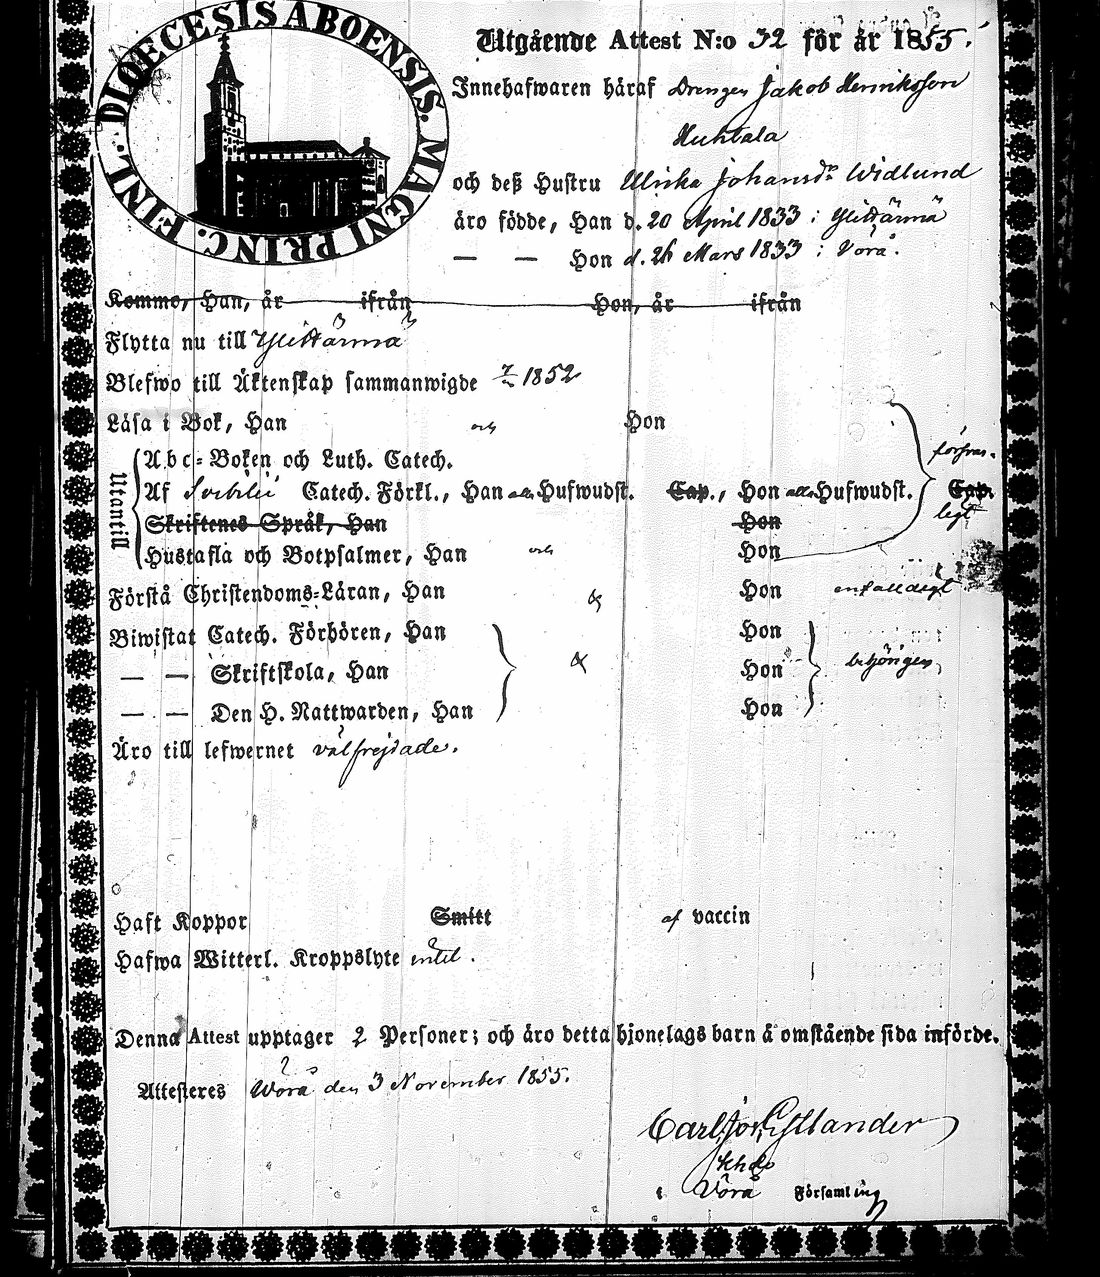 DIOECESIS ABOENSIS. MAGNI PRINC. FINL.
Utgående Attest N:o 32 för år 1855.
Innehafwaren häraf Drengen Jakob Henriksson
Huhtala
och deß Hustru Ulrika Johansdr Widlund
äro födde, Han d. 20 April 1833 i Ylihärmä
— — Hon d. 26 Mars 1833 i Vörå.
Kommo, Han, år ifrån Hon, år ifrån
Flytta nu till Ylihärmä
Blefwo till Äktenskap sammanwigde 1852
Läsa i Bok, Han och Hon
Utantill
Abc-Boken och Luth. Catech.
Af Svebilii Catech. Förkl., Han alla Hufwudst. Cap., Hon alla Hufwudst. Cap.
försvar-
ligt
Skriftenes Språk, Han Hon
Hustafla och Botpsalmer, Han och Hon
Förstå Christendoms-Läran, Han & Hon enfaldigt
Biwistat Catech. Förhören, Han Hon
— — Skriftskola, Han & Hon behörigen
— — Den H. Nattwarden, Han Hon
Äro till lefwernet välfrejdade.
Haft Koppor Smitt af vaccin
Hafwa Witterl. Kroppslyte intet.
Denna Attest upptager 2 Personer; och äro detta hjonelags barn å omstående sida införde.
Attesteres Wörå den 3 November 1855.
Carl Joh. Gyllander
Khde
i Vörå Församling